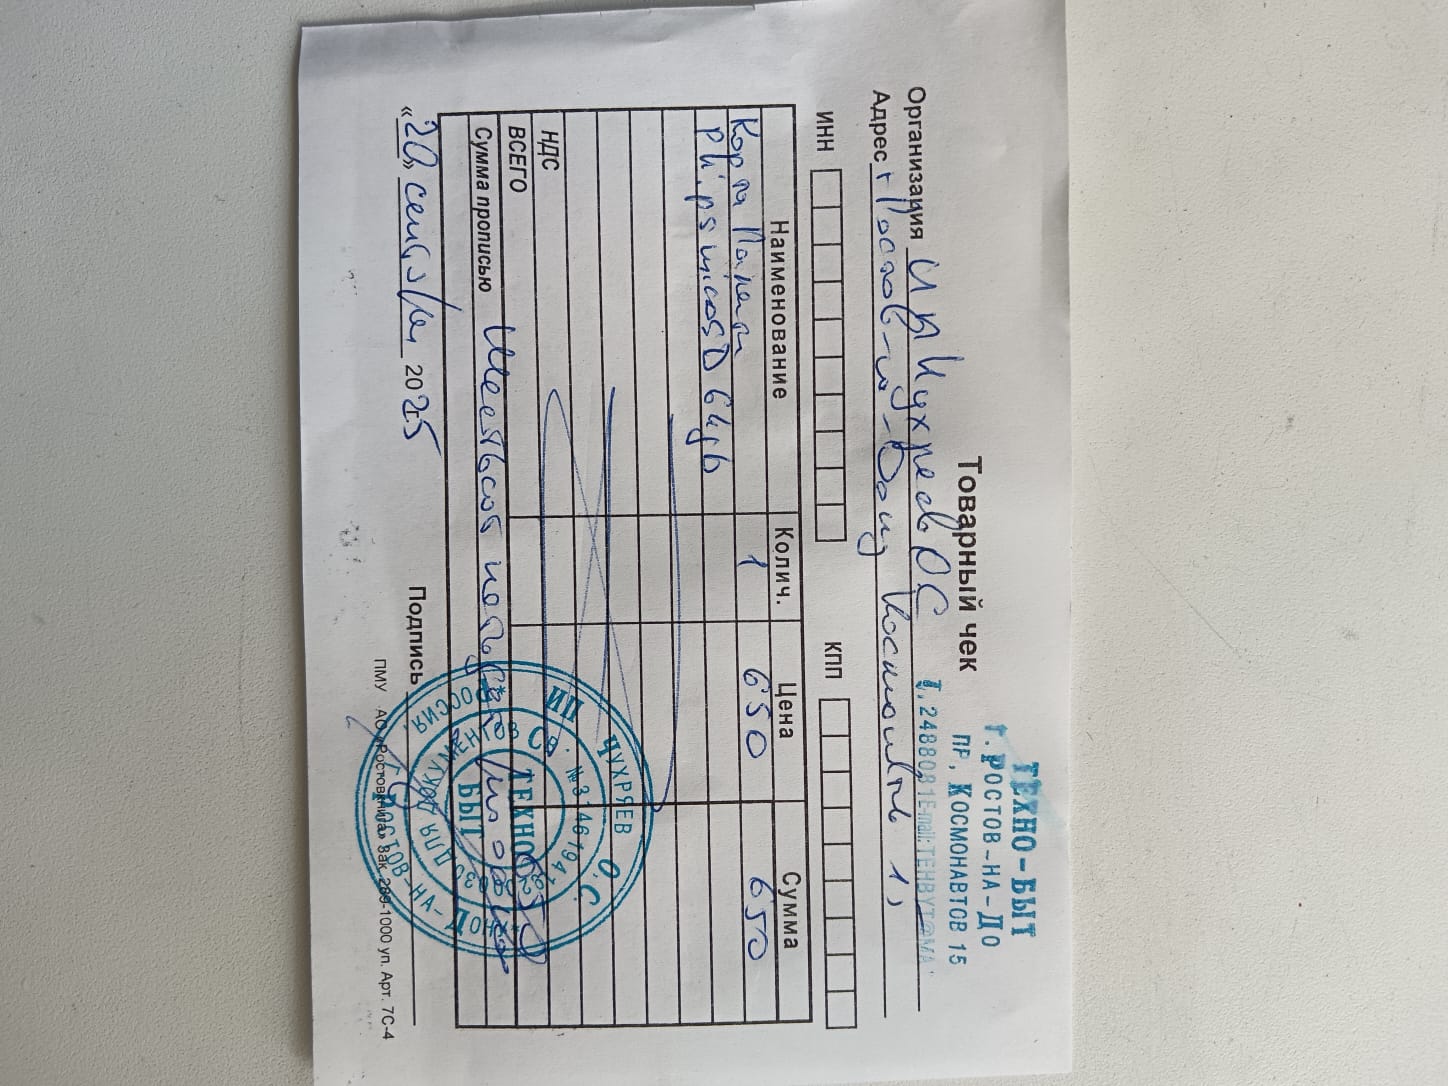 ТЕХНО-БЫТ
Г. РОСТОВ-НА-ДО
ПР, КОСМОНАВТОВ 15
Т, 2488081 E-mail: TEHBYT@MA
Товарный чек
Организация ИП Чухряев ОС
Адрес г Ростов-на-Дону Космонавтов 1,
ИНН КПП
Наименование Колич. Цена Сумма
Карта Памяти 1 650 650
microSD 64gb
НДС
ВСЕГО 650
Сумма прописью Шестьсот пятьдесят
«20» сентября 2025 Подпись
ПМУ АО «Ростовкнига» Зак. 269-1000 уп. Арт. 7С-4
ИП ЧУХРЯЕВ О.С.
РОССИЯ Г. РОСТОВ-НА-ДОНУ
ДЛЯ ДОКУМЕНТОВ
ТЕХНО
БЫТ